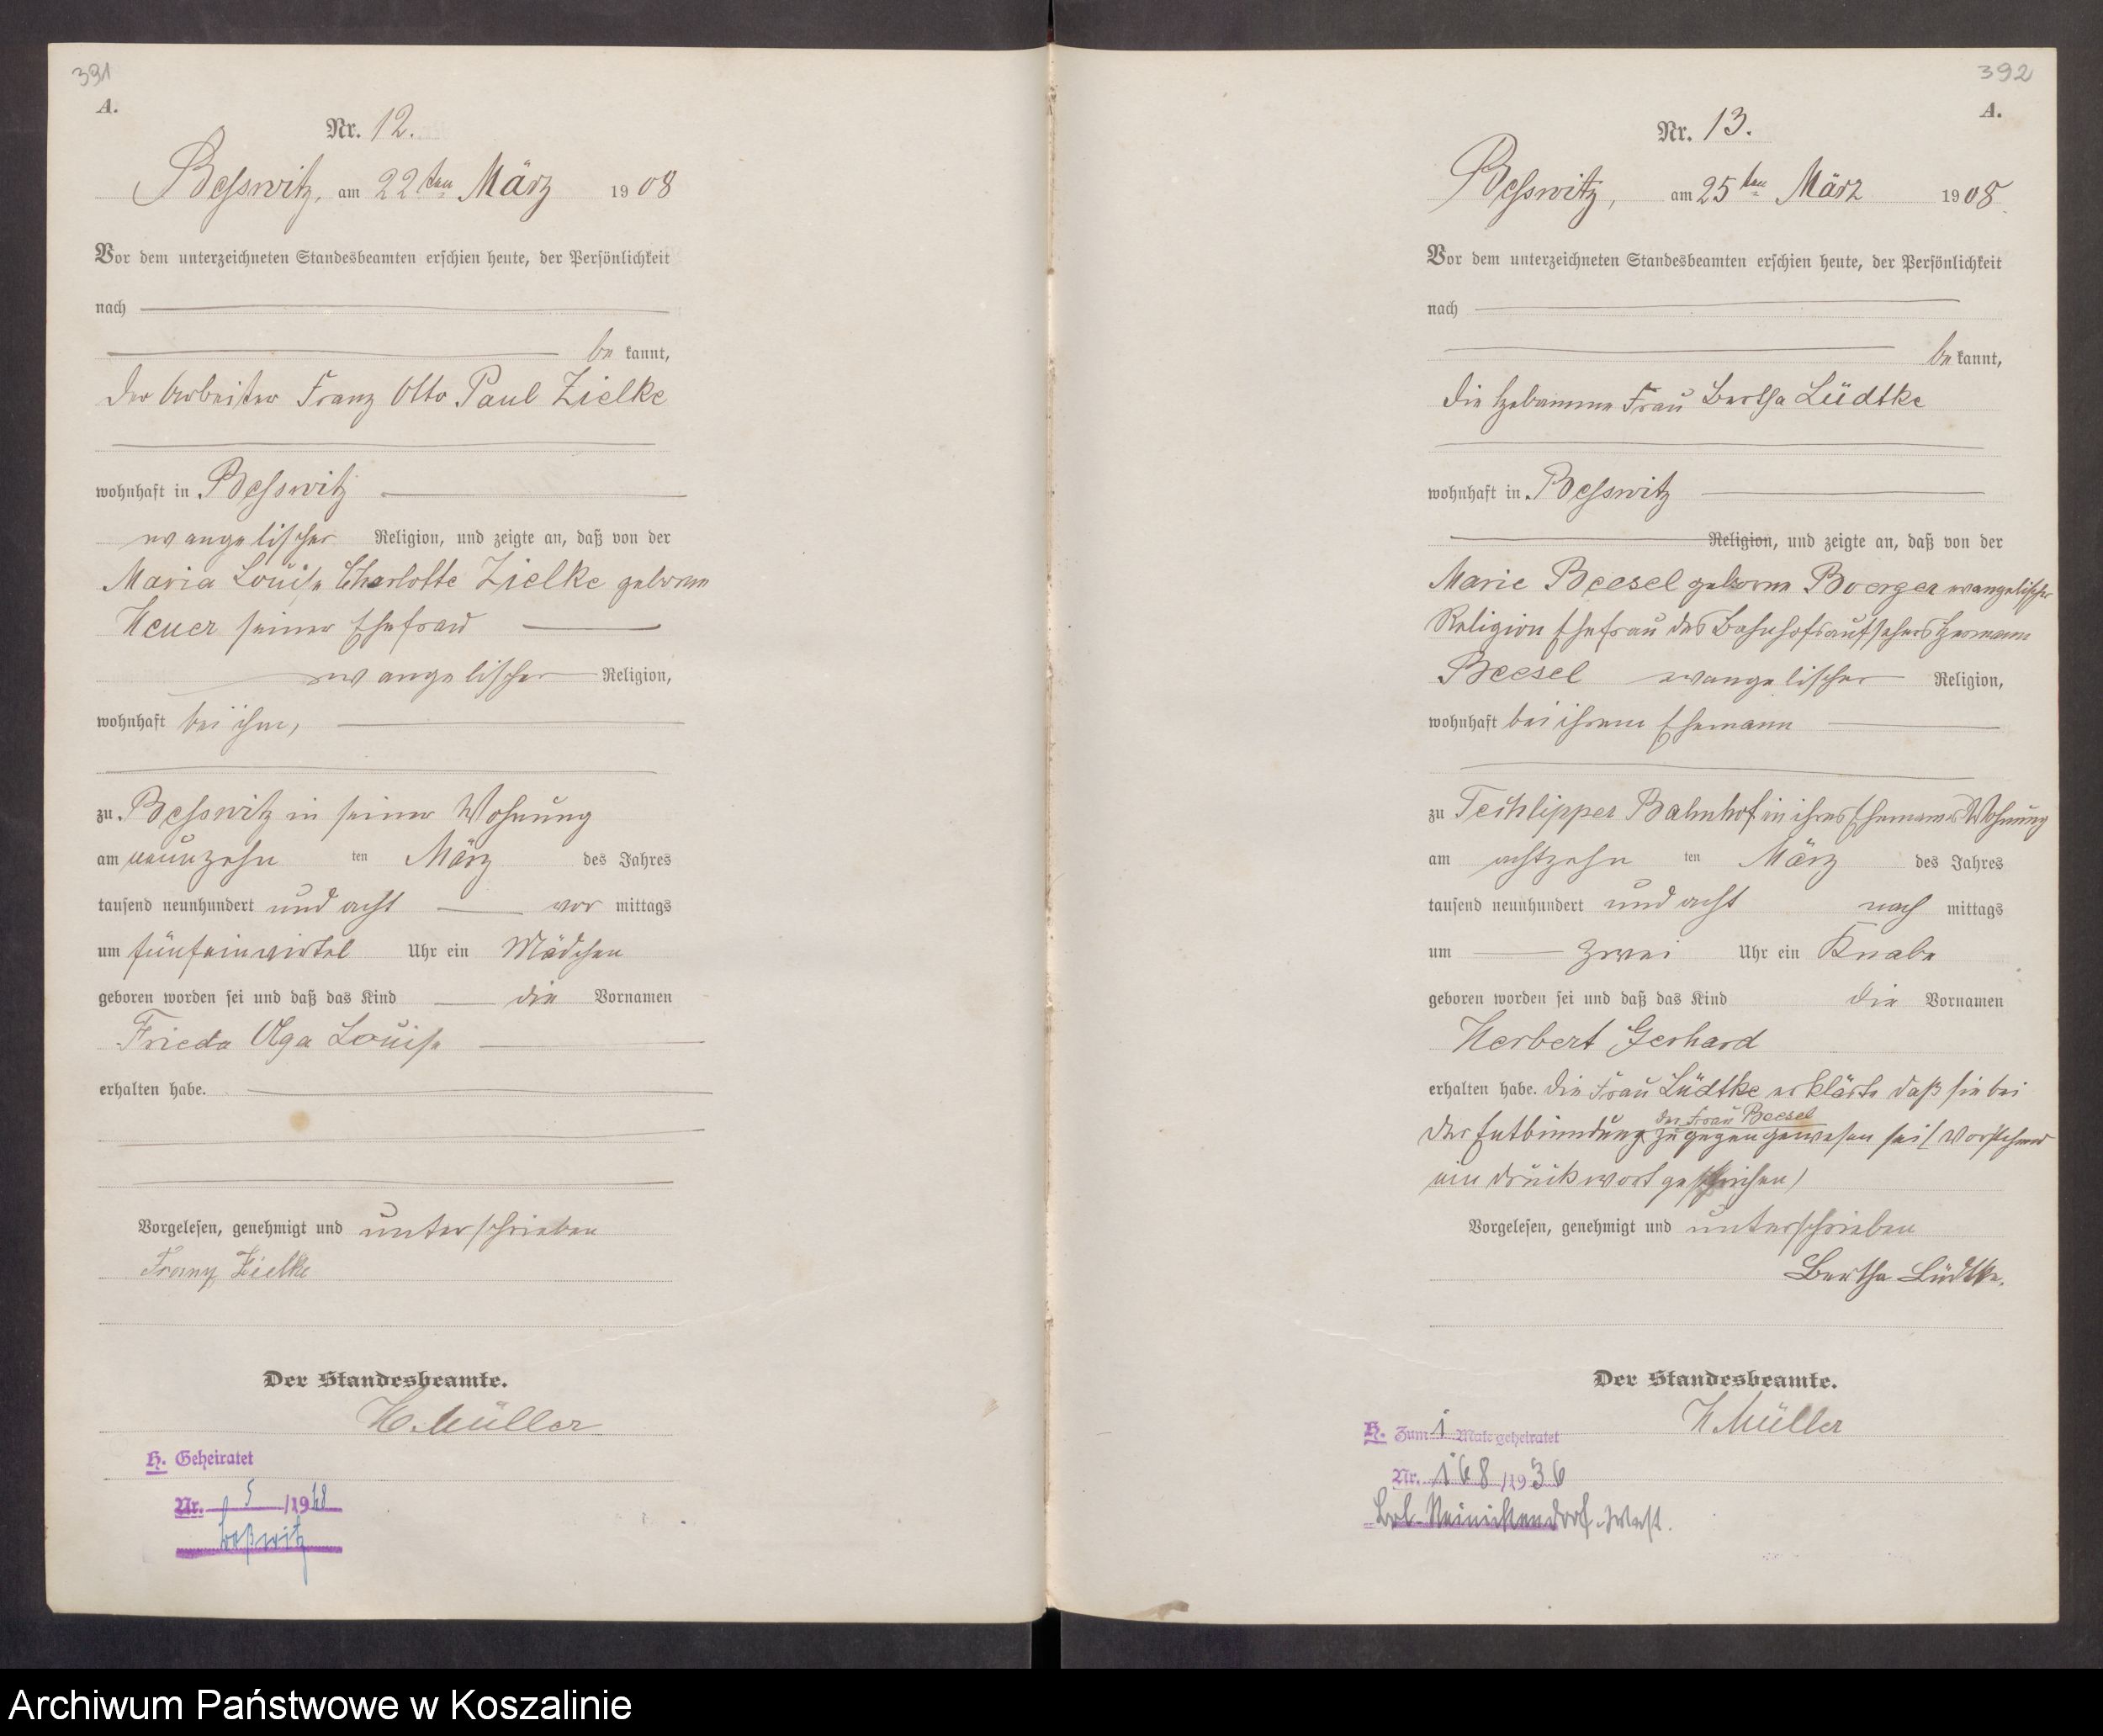 391
A.
Nr. 12.
Besswitz, am 22ten März 1908
Vor dem unterzeichneten Standesbeamten erschien heute, der Persönlichkeit
nach
be kannt,
der Arbeiter Franz Otto Paul Zielke
wohnhaft in Besswitz
evangelischer Religion, und zeigte an, daß von der
Maria Louise Charlotte Zielke geborene
Heuer seiner Ehefrau
evangelischer Religion,
wohnhaft bei ihm,
zu Besswitz in seiner Wohnung
am neunzehn ten März des Jahres
tausend neunhundert und acht vor mittags
um fünfeinviertel Uhr ein Mädchen
geboren worden sei und daß das Kind die Vornamen
Frieda Olga Louise
erhalten habe.
Vorgelesen, genehmigt und unterschrieben
Franz Zielke
Der Standesbeamte.
H. Müller
H. Geheiratet
Nr. 5 /19
Beßwitz
392
A.
Nr. 13.
Besswitz, am 25ten März 1908
Vor dem unterzeichneten Standesbeamten erschien heute, der Persönlichkeit
nach
be kannt,
die Hebamme Frau Bertha Lüdtke
wohnhaft in Besswitz
Religion, und zeigte an, daß von der
Marie Beesel geborne Boerger evangelischer
Religion Ehefrau des Bahnhofsaufsehers Hermann
Beesel evangelischer Religion,
wohnhaft bei ihrem Ehemann
zu Techlipper Bahnhof in ihres Ehemanns Wohnung
am achtzehn ten März des Jahres
tausend neunhundert und acht nach mittags
um zwei Uhr ein Knabe
geboren worden sei und daß das Kind die Vornamen
Herbert Gerhard
erhalten habe. Die Frau Lüdtke erklärte daß sie bei
der Frau Beesel
der Entbindung zugegen gewesen sei (Vorstehend
ein Druckwort gestrichen)
Vorgelesen, genehmigt und unterschrieben
Bertha Lüdtke.
Der Standesbeamte.
H Müller
H. Zum 1 Male geheiratet
Nr. 168 /1936
Brl-Reinickendorf-West.
Archiwum Państwowe w Koszalinie